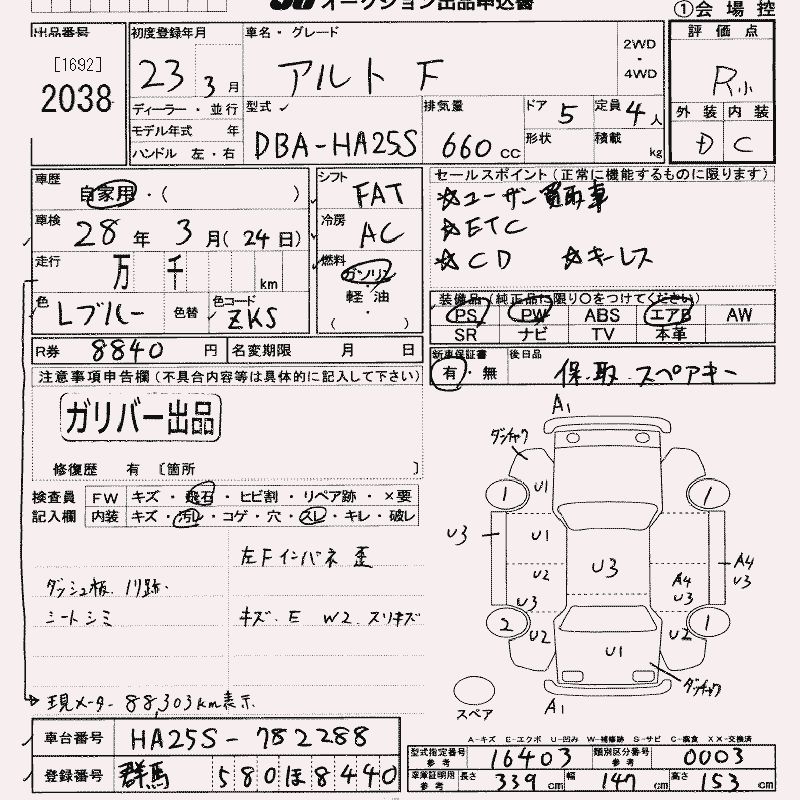 オークション出品申込書
①会 場 控
出品番号
[1692]
2038
初度登録年月
23 3 月
車名・グレード
アルト F
2WD
・
4WD
評 価 点
R小
外 装 内 装
D C
ディーラー ・ 並行
モデル年式 年
ハンドル 左 ・ 右
型式
DBA-HA25S
排気量
660 CC
ドア 5
定員 4 人
形状
積載 kg
車歴
自家用 ・ ( )
車検
28 年 3 月( 24 日)
走行
万 千 km
色
Lブルー
色替
色コード
ZKS
シフト
FAT
冷房
AC
燃料
ガソリン
軽・油
( )
セールスポイント (正常に機能するものに限ります)
☆ユーザー買取車
☆ETC
☆CD ☆キーレス
装備品 (純正品に限り○をつけてください)
PS PW ABS エアB AW
SR ナビ TV 本革
R券 8840 円
名変期限 月 日
新車保証書
有・無
後日品
保.取.スペアキー
注意事項申告欄 (不具合内容等は具体的に記入して下さい)
ガリバー出品
修復歴 有 〔箇所 〕
検査員
記入欄
FW キズ ・ 飛石 ・ ヒビ割 ・ リペア跡 ・ ×要
内装 キズ ・ 汚レ ・ コゲ ・ 穴 ・ スレ ・ キレ ・ 破レ
左Fインパネ 歪
ダッシュ板.ノリ跡.
シートシミ
キズ. E W2. スリキズ
現メーター 88,303km表示
A1
ダンチャク
1 U1 1
U3 U1
U2 U3 A4
U3 A4
U3 U3
2 U2 U2 1
U1
ダンチャク
A1
スペア
A-キズ E-エクボ U-凹み W-補修跡 S-サビ C-腐食 XX-交換済
車台番号 HA25S-782288
登録番号 群馬 580 ほ 8440
型式指定番号
参 考
16403
類別区分番号
参 考
0003
車庫証明用
参 考
長さ 339 cm 幅 147 cm 高さ 153 cm